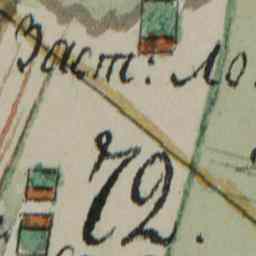 Заст: Ло
72.